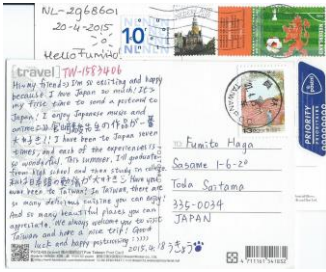 NL-2968601
20-4-2015
Hello Fumiho!
10
1
travel
TW-1583406
Hi, my friend~ I'm so exciting and happy
because I love Japan so much! It's
my first time to send a postcard to
Japan! I enjoy Japanese music and
anime
I have been to Japan seven
times, and each of the experiences is
so wonderful. This summer, I'll graduate
from high school and then study in college.
Have you
ever been to Taiwan? In Taiwan, there are
so many delicious cuisine you can enjoy!
And so many beautiful places you can
appreciate. We always welcome you to visit
Taiwan and have a nice trip! Good
luck and happy postcrossing :)
2015.04.18
TAINAN
PRIORITY
PRIORITAIRE
Fumito Haga
Sasame 1-6-20
Toda Saitama
335-0034
JAPAN